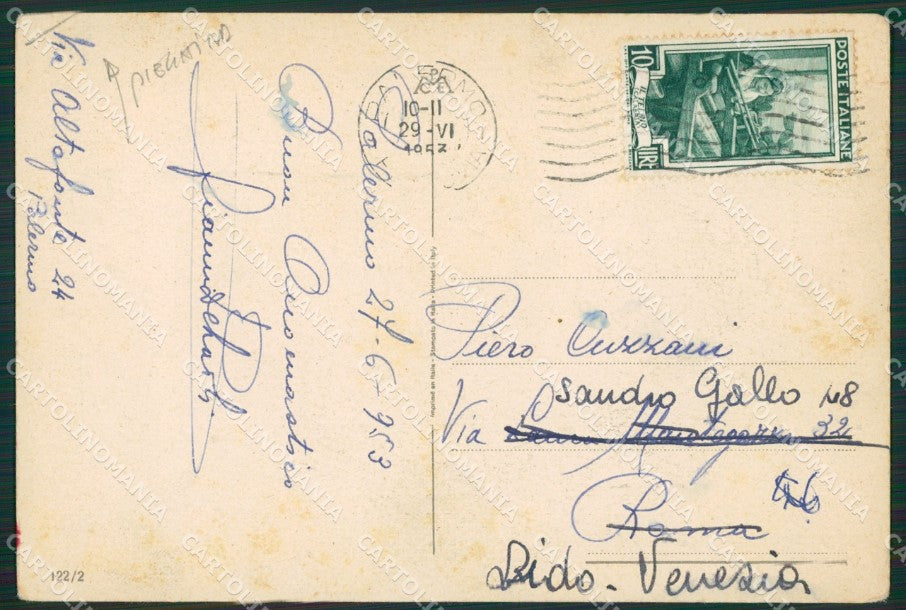 PIEGATINA
Via Altofonte 24
Palermo
Palermo 27-6-953
Buon Onomastico
PALERMO
10-11
29-VI
1953
POSTE ITALIANE
10
LIRE
Imprimé en Italie - Stampato in Italia - Printed in Italy
Piero Cuzzani
Sandro Gallo 48
Via Mantegazza 32
Roma
Lido - Venezia
122/2
CARTOLINOMANIA